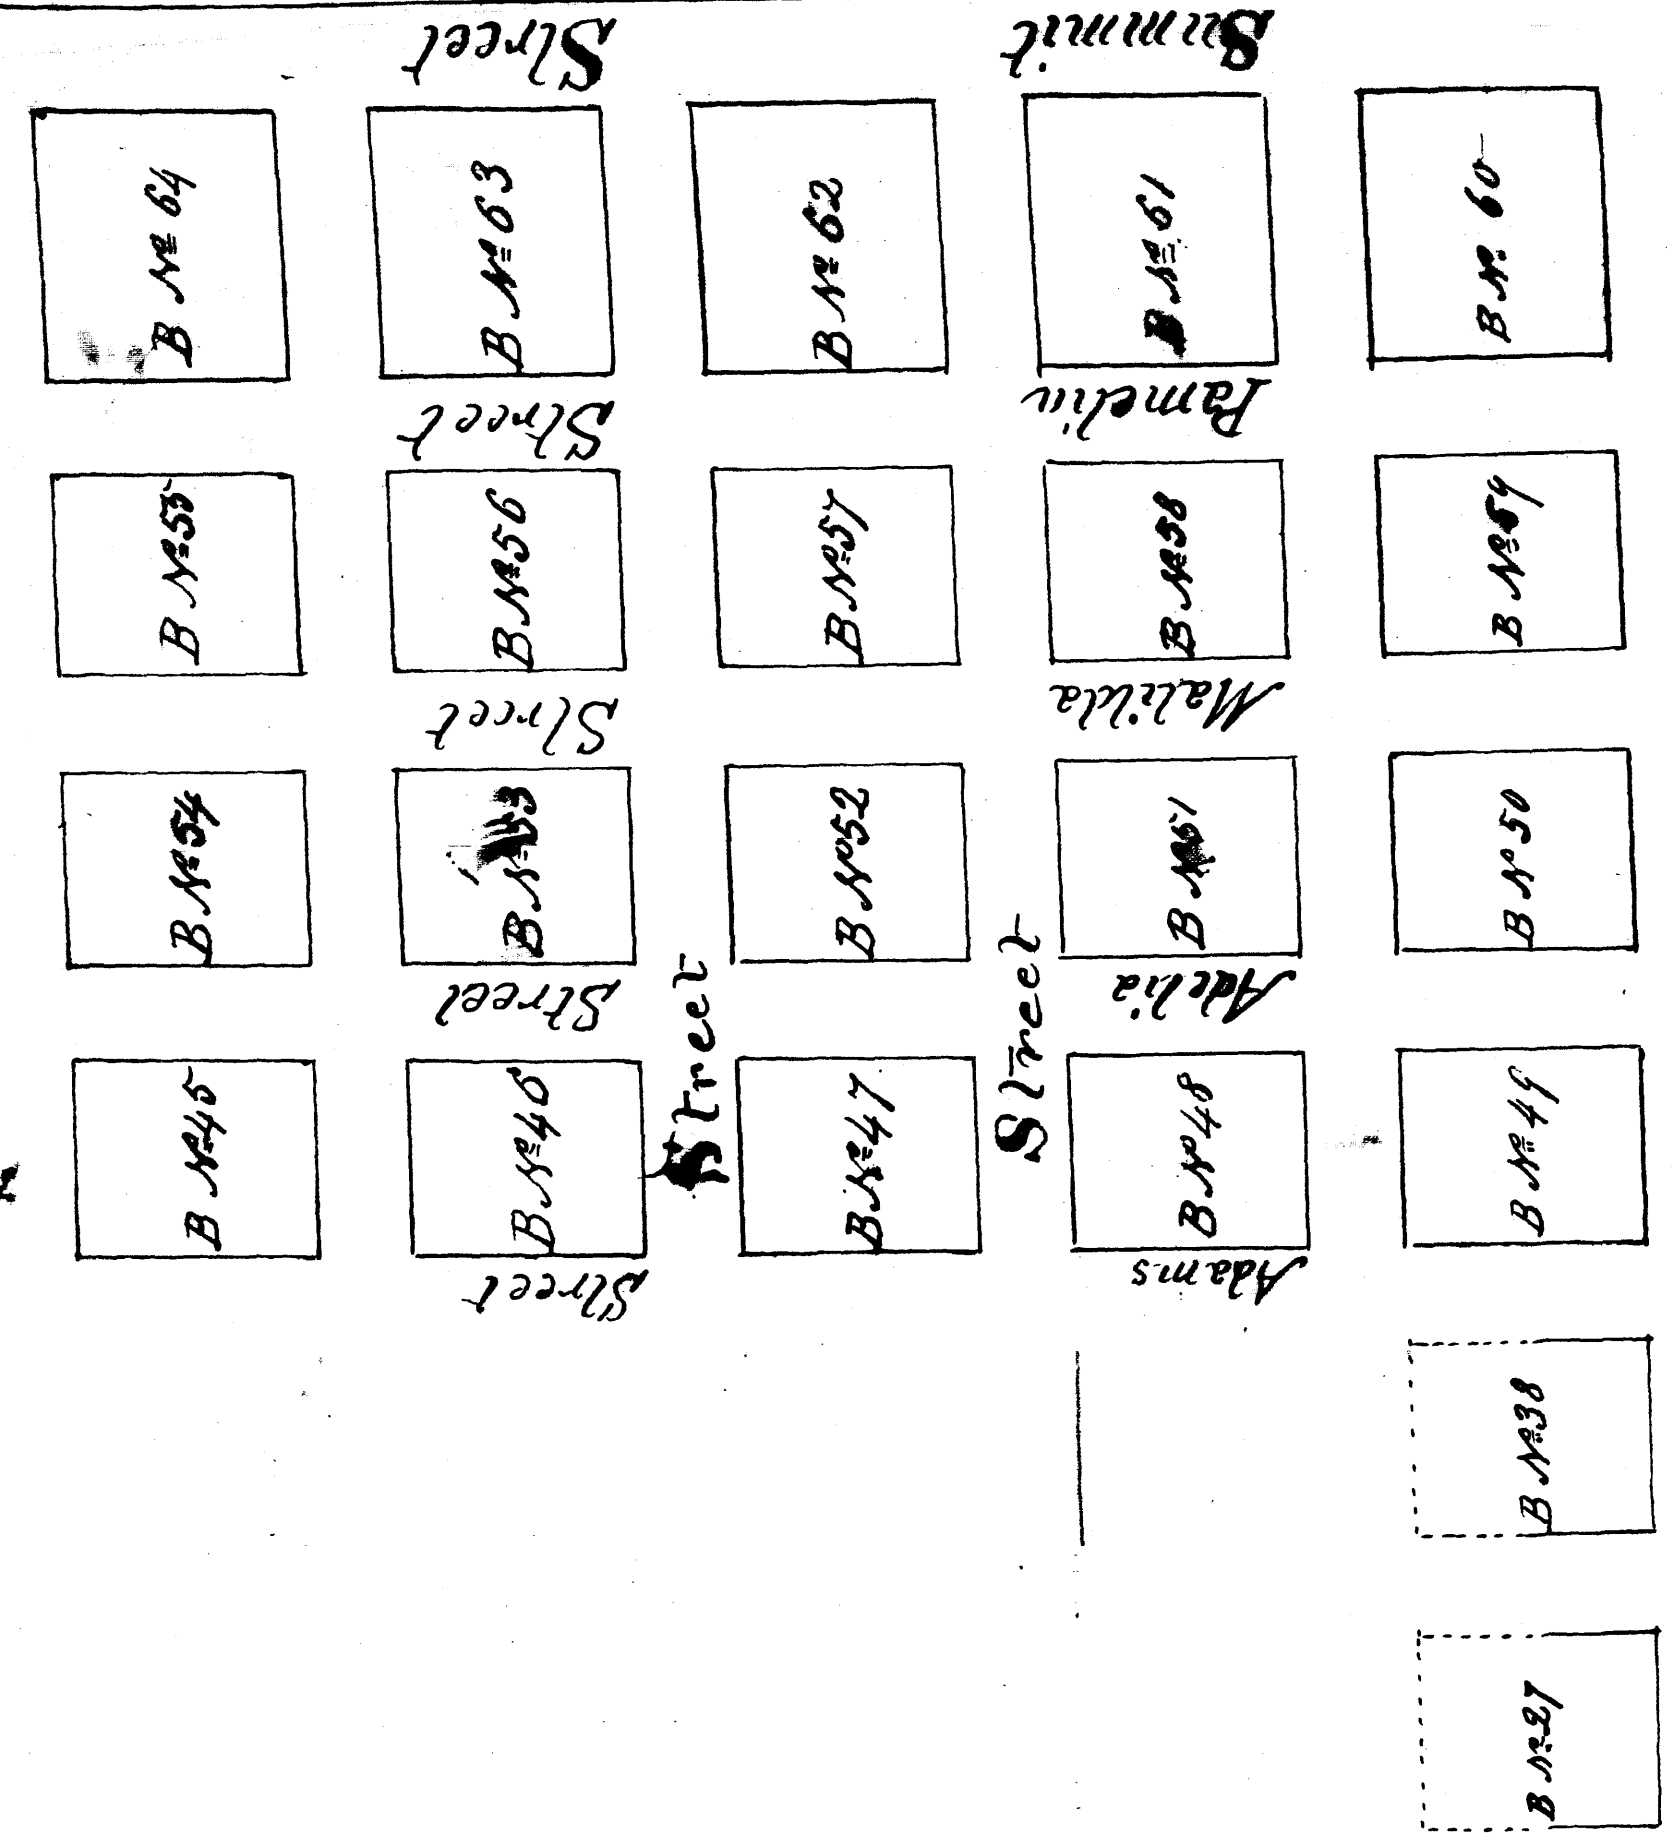 Summit Street
B Nº 64
B Nº 63
B Nº 62
B Nº 61
B Nº 60
Pamelia Street
B Nº 55
B Nº 56
B Nº 57
B Nº 58
B Nº 59
Matilda Street
B Nº 54
B Nº 53
B Nº 52
B Nº 51
B Nº 50
Adelia Street
Street
Street
B Nº 45
B Nº 46
B Nº 47
B Nº 48
B Nº 49
Adams Street
B Nº 38
B Nº 27